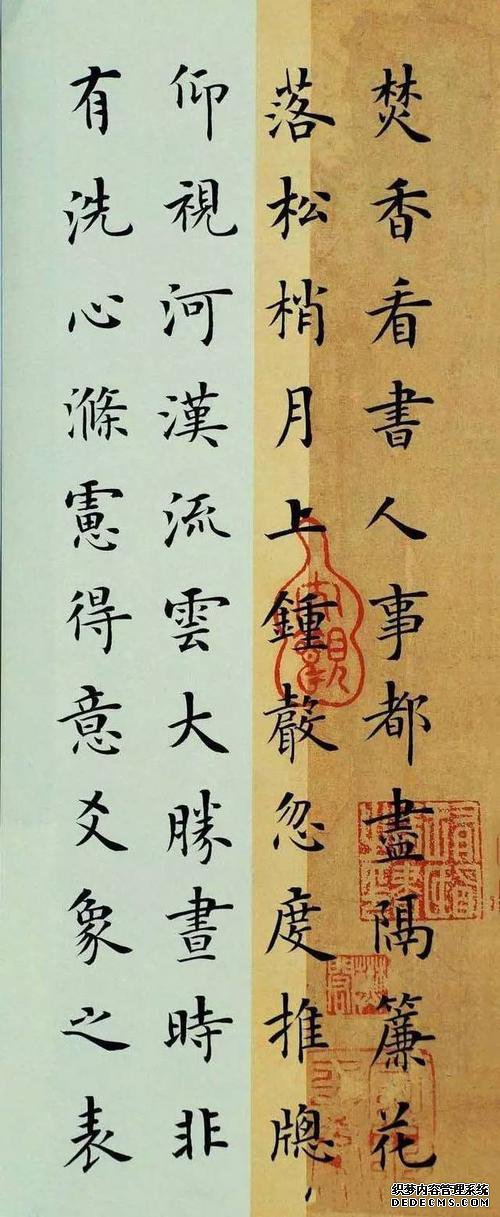 焚香看書人事都盡隔簾花
落松梢月上鍾聲忽度推牕
仰視河漢流雲大勝晝時非
有洗心滌慮得意爻象之表
织梦内容管理系统
DEDECMS.COM